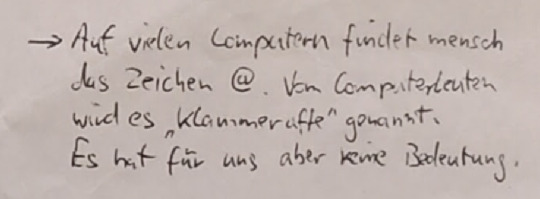 → Auf vielen Computern findet mensch
das Zeichen @. Von Computerleuten
wird es „Klammeraffe" genannt.
Es hat für uns aber keine Bedeutung.